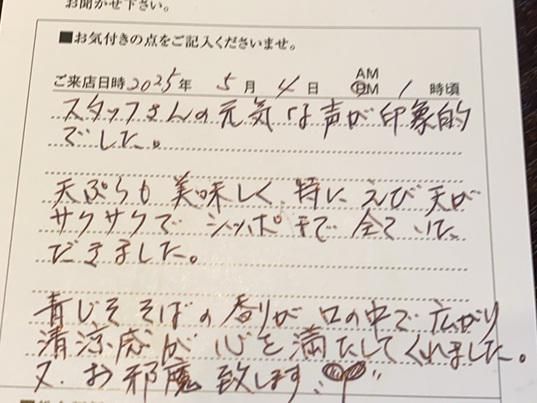 お聞かせ下さい。
■お気付きの点をご記入くださいませ。
ご来店日時 2025年 5月 4日 AM PM 1 時頃
スタッフさんの元気な声が印象的
でした。
天ぷらも美味しく、特にえび天が
サクサクで シッポまで全ていた
だきました。
青じそそばの香りが口の中で広がり
清涼感が心を満たしてくれました。
又、お邪魔致します。